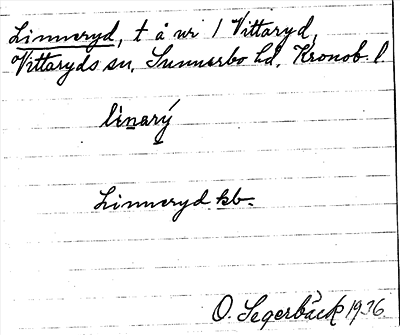 Linneryd, t å nr 1 Vittaryd,
Vittaryds sn, Sunnerbo hd, Kronob. l
lìnərý
Linneryd kb.
O. Segerbäck 1936.